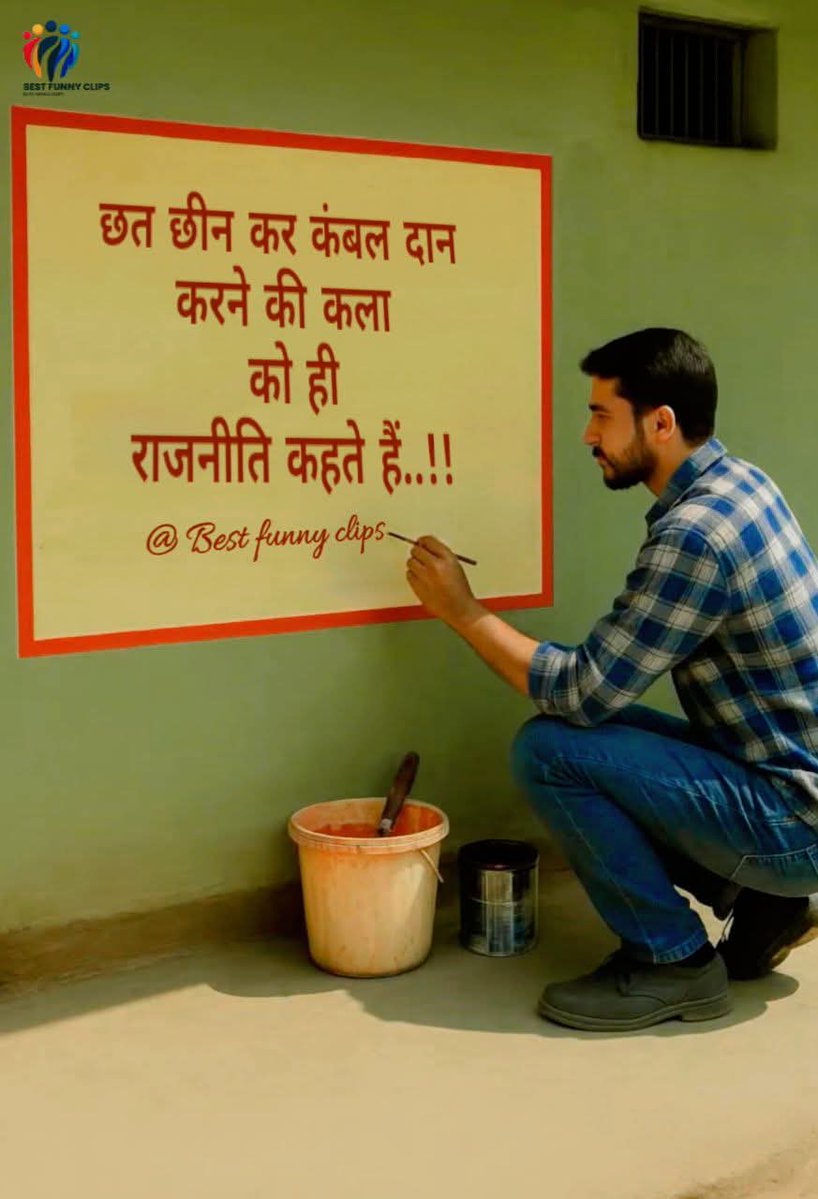 BEST FUNNY CLIPS
छत छीन कर कंबल दान
करने की कला
को ही
राजनीति कहते हैं..!!
@ Best funny clips